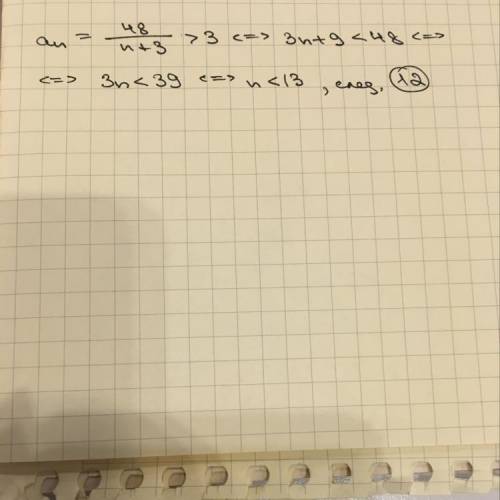 an = 48/(n+3) > 3 <=> 3n+9 < 48 <=>
<=> 3n < 39 <=> n < 13, след. 12